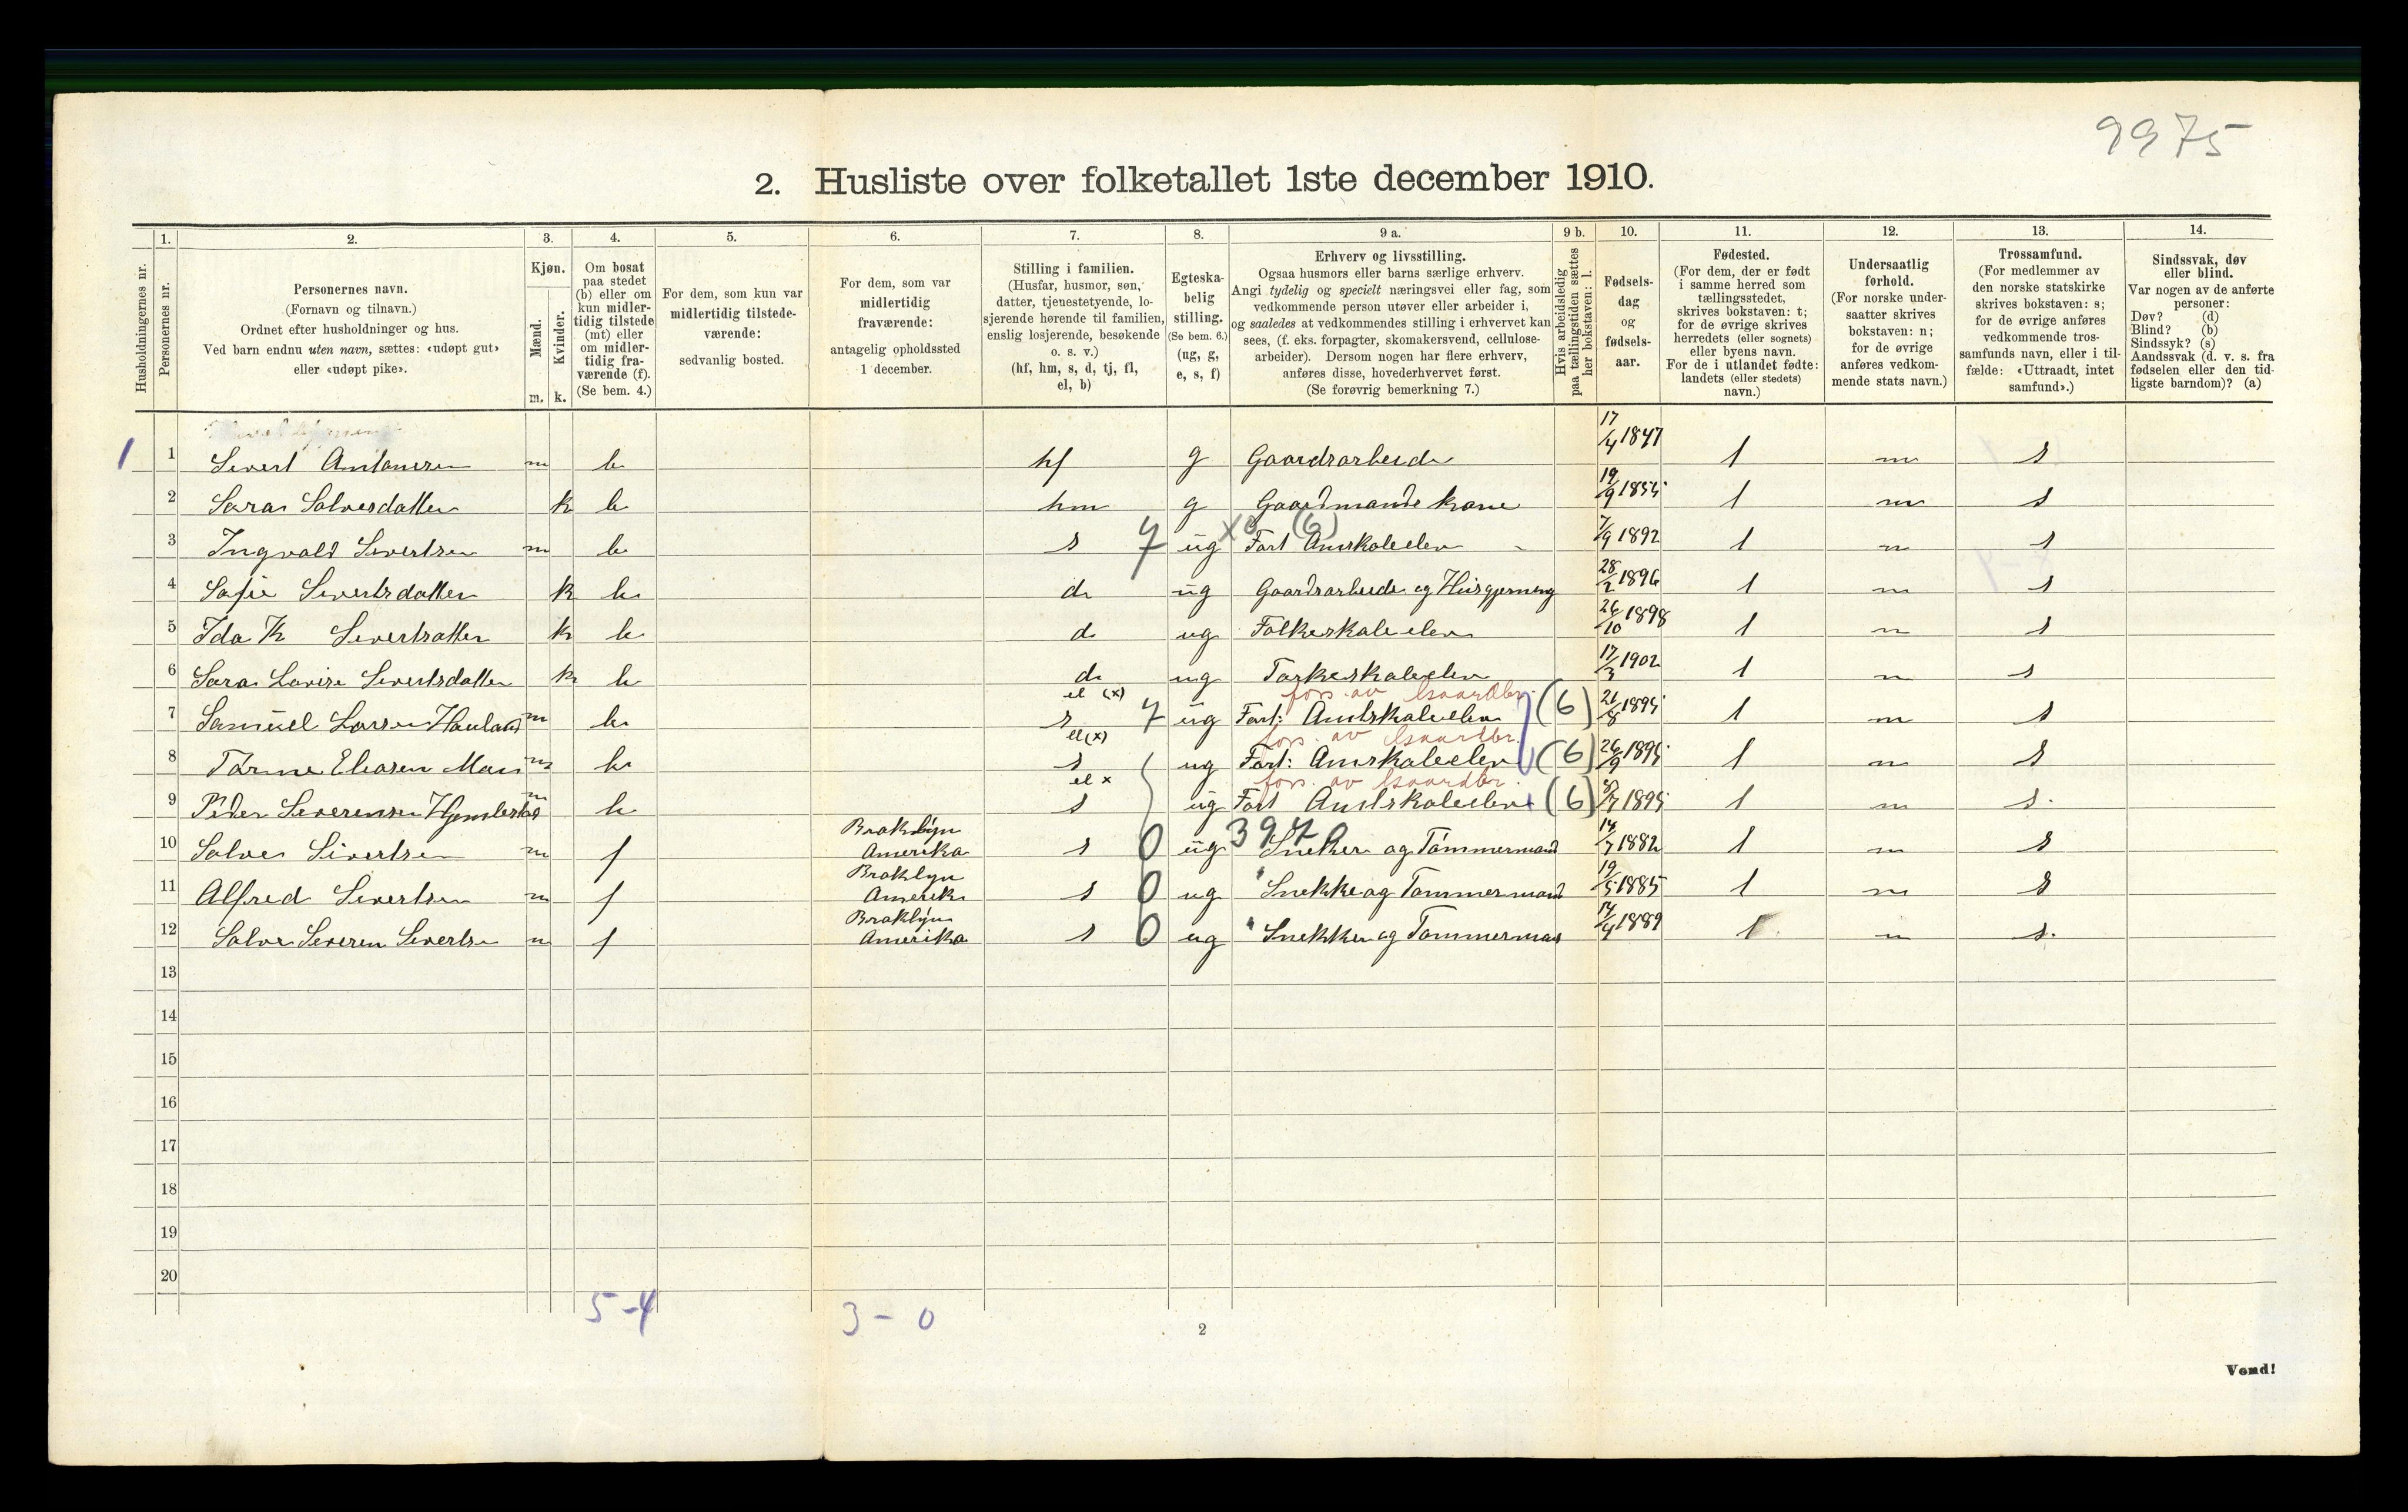 9975
2. Husliste over folketallet 1ste december 1910.
Husholdningernes nr.
1. Personernes nr.
2. Personernes navn. (Fornavn og tilnavn.) Ordnet efter husholdninger og hus. Ved barn endnu uten navn, sættes: «udøpt gut» eller «udøpt pike».
3. Kjøn. Mænd. m. Kvinder. k.
4. Om bosat paa stedet (b) eller om kun midler-tidig tilstede (mt) eller om midler-tidig fra-værende (f). (Se bem. 4.)
5. For dem, som kun var midlertidig tilstede-værende: sedvanlig bosted.
6. For dem, som var midlertidig fraværende: antagelig opholdssted 1 december.
7. Stilling i familien. (Husfar, husmor, søn, datter, tjenestetyende, lo-sjerende hørende til familien, enslig losjerende, besøkende o. s. v.) (hf, hm, s, d, tj, fl, el, b)
8. Egteska-belig stilling. (Se bem. 6.) (ug, g, e, s, f)
9 a. Erhverv og livsstilling. Ogsaa husmors eller barns særlige erhverv. Angi tydelig og specielt næringsvei eller fag, som vedkommende person utøver eller arbeider i, og saaledes at vedkommendes stilling i erhvervet kan sees, (f. eks. forpagter, skomakersvend, cellulose-arbeider). Dersom nogen har flere erhverv, anføres disse, hovederhvervet først. (Se forøvrig bemerkning 7.)
9 b. Hvis arbeidsledig paa tællingstiden sættes her bokstaven: l.
10. Fødsels-dag og fødsels-aar.
11. Fødested. (For dem, der er født i samme herred som tællingsstedet, skrives bokstaven: t; for de øvrige skrives herredets (eller sognets) eller byens navn. For de i utlandet fødte: landets (eller stedets) navn.)
12. Undersaatlig forhold. (For norske under-saatter skrives bokstaven: n; for de øvrige anføres vedkom-mende stats navn.)
13. Trossamfund. (For medlemmer av den norske statskirke skrives bokstaven: s; for de øvrige anføres vedkommende tros-samfunds navn, eller i til-fælde: «Uttraadt, intet samfund».)
14. Sindssvak, døv eller blind. Var nogen av de anførte personer: Døv? (d) Blind? (b) Sindssyk? (s) Aandssvak (d. v. s. fra fødselen eller den tid-ligste barndom)? (a)
1 1 Sivert Antonsen m b hf g Gaardsarbeide 17/4 1847 t n s
2 Sara Salvesdatter k b hm g Gaardmands kone 19/9 1854 t n s
3 Ingvald Sivertsen m b s 7 ug (6) Fort Amskoleelev 7/9 1892 t n s
4 Sofie Sivertsdatter k b d ug Gaardsarbeide og Husgjerning 28/2 1896 t n s
5 Ida K Sivertsatter k b d ug Folkeskoleelev 26/10 1898 t n s
6 Sara Lovise Sivertsdatter k b d ug Folkeskoleelev 17/3 1902 t n s
el (x) fors. av Gaardbr.
7 Samuel Larsen Hauland m b s 7 ug Fort: Amtskoleelev (6) 21/8 1895 t n s
el (x) fors. av Gaardbr.
8 Tørres Eliasen m b s ug Fort: Amskoleelev (6) 26/9 1895 t n s
el x fors. av Gaardbr.
9 Peder Severensen m b s ug Fort Amtskoleelev (6) 1895 t n s.
10 Salve Sivertsen m f Broklyn Amerika s 0 ug 397 Sneker og Tømmermand 14/7 1882 t n s
11 Alfred Sivertsen m f Broklyn Amerika s 0 ug " Snekke og Tømmermand 19/5 1885 t n s
12 Salve Severen Sivertse m f Broklyn Amerika s 0 ug " Snekker og Tømmerman 14/4 1889 t n s.
13
14
15
16
17
18
19
20
5-4 3-0
2
Vend!